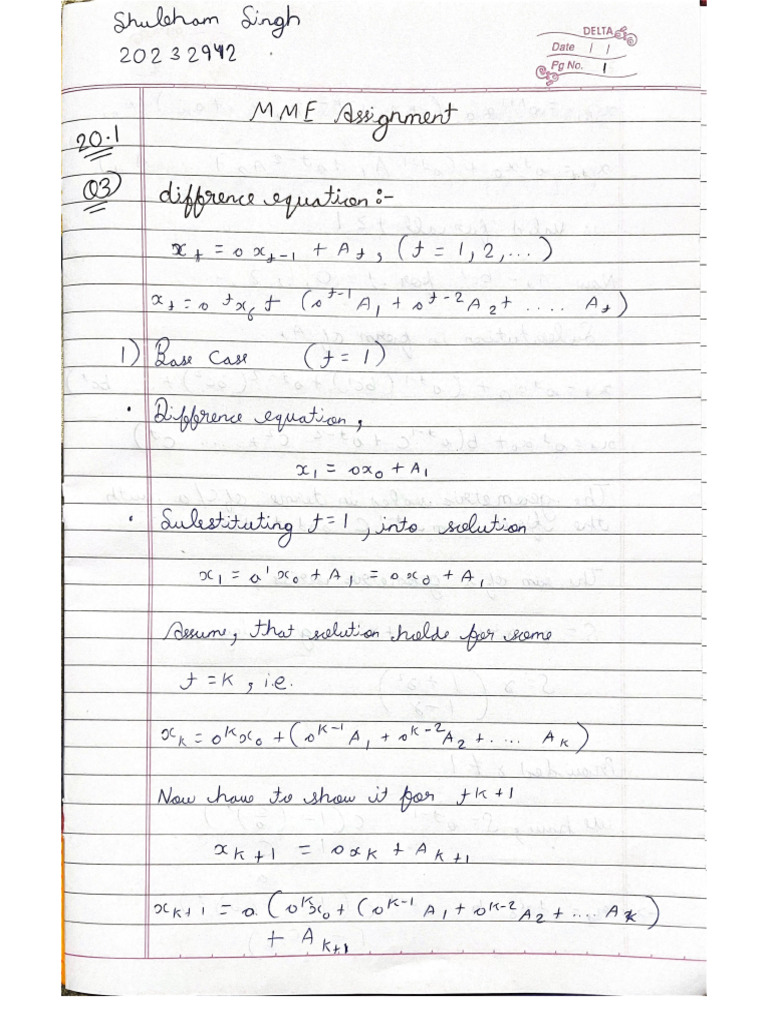 Shubham Singh
20232942
DELTA
Date / /
Pg No. 1
MME Assignment
20.1
Q3) difference equation:-
x_t = a x_{t-1} + A_t, (t = 1, 2, ...)
x_t = a^t x_0 + (a^{t-1} A_1 + a^{t-2} A_2 + .... A_t)
1) Base Case (t = 1)
• Difference equation,
x_1 = a x_0 + A_1
• Substituting t=1, into solution
x_1 = a^1 x_0 + A_1 = a x_0 + A_1
Assume, that solution holds for some
t = k, i.e.
x_k = a^k x_0 + (a^{k-1} A_1 + a^{k-2} A_2 + .... A_k)
Now have to show it for tk+1
x_{k+1} = a x_k + A_{k+1}
x_{k+1} = a. (a^k x_0 + (a^{k-1} A_1 + a^{k-2} A_2 + .... A_k)
+ A_{k+1}